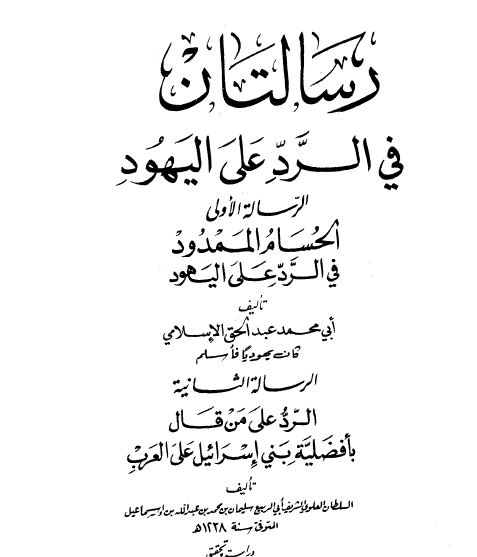 رسالتان
في الرَّدِّ عَلَى اليَهُودِ
الرسالة الأولى
الحُسَامُ المَمْدُودْ
في الرَّدِّ عَلَى اليَهود
تأليف
أبي محمد عبد الحق الإسلامي
كان يهوديًا فأسلم
الرسالة الثانية
الرَّدُّ عَلَى مَنْ قَال
بأفضَليَّة بَنِي إسْرَائيل عَلَى العَرَبْ
تأليف
السلطان العلوي الشريف أبي الربيع سليمان بن محمد بن عبد الله بن إسماعيل
المتوفى سنة ١٢٣٨هـ
دراسة وتحقيق